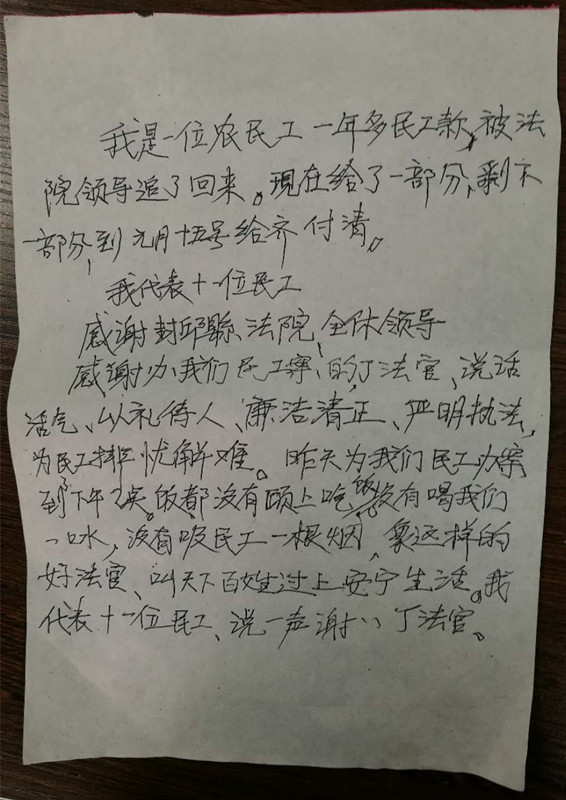 我是一位农民工一年多民工款,被法
院领导追了回来。现在给了一部分,剩下
一部分,到元月十五号给齐付清。
我代表十一位民工
感谢封邱縣、法院、全体领导
感谢办我们民工案、的丁法官、说话
活气、以礼待人、廉洁清正、严明执法,
为民工排忧解难。昨天为我们民工办案
到下午2点。饭都没有顾上吃饭,没有喝我们
一口水,没有吸民工一根烟,象这样的
好法官、叫天下百姓过上安宁生活。我
代表十一位民工、说一声谢谢丁法官。